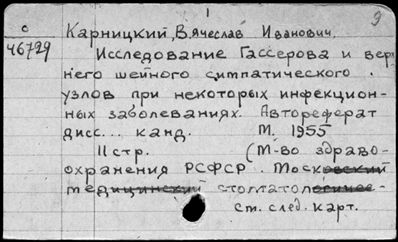 с
46729
Карницкий, Вячеслав Иванович.
Исследование Гассерова и верх
него шейного симпатического
узлов при некоторых инфекцион-
ных заболеваниях. Автореферат
дисс... канд. М. 1955
11 стр. (М-во здраво-
охранения РСФСР. Московский
медицинский стоматологичес-
см. след. карт.